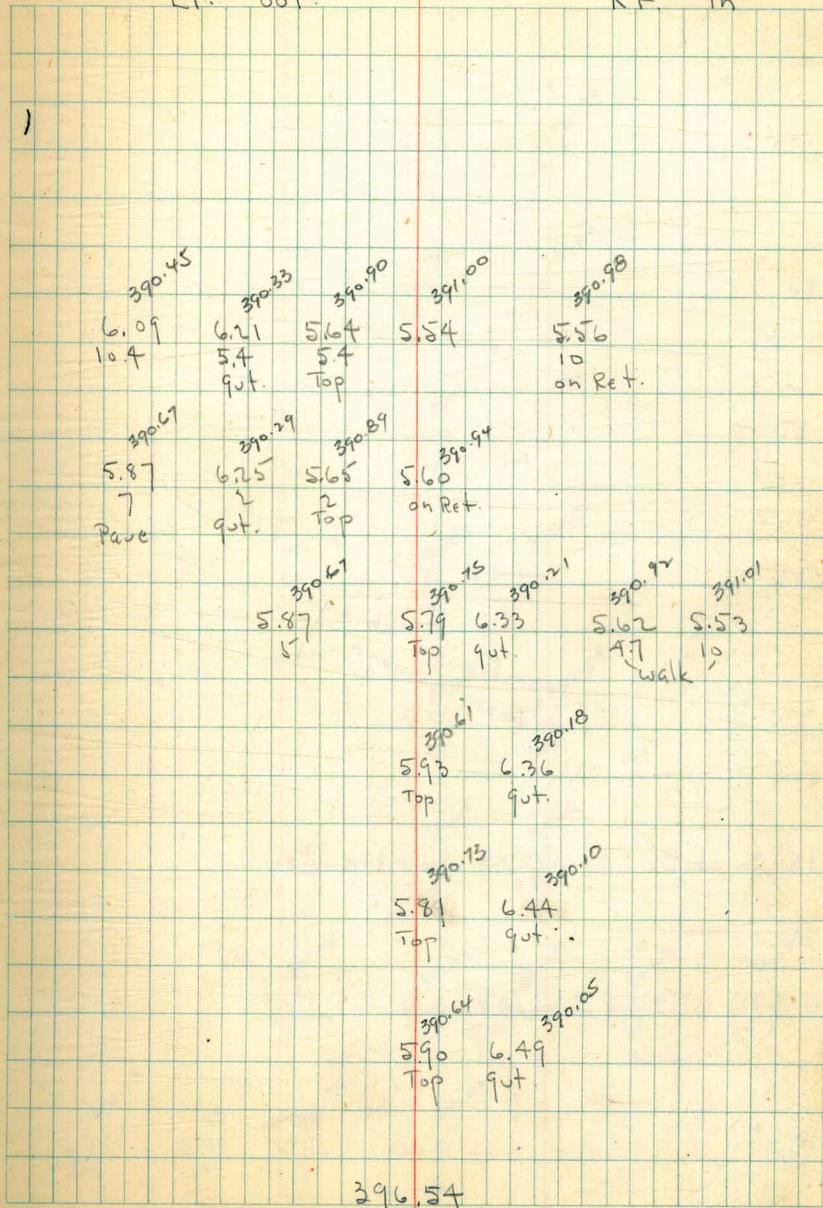 LT. out. RT. in
390.45 390.33 390.90 391.00 390.98
6.09 6.21 5.64 5.54 5.56
10.4 5.4 5.4 10
gut. Top on Ret.
390.67 390.29 390.89 390.94
5.87 6.25 5.65 5.60
7 2 2 on Ret.
Pave gut. Top
390.67 390.75 390.21 390.92 391.01
5.87 5.79 6.33 5.62 5.53
5 Top gut. 4.7 10
walk
390.61 390.18
5.93 6.36
Top gut.
390.73 390.10
5.81 6.44
Top gut.
390.64 390.05
5.90 6.49
Top gut.
396.54